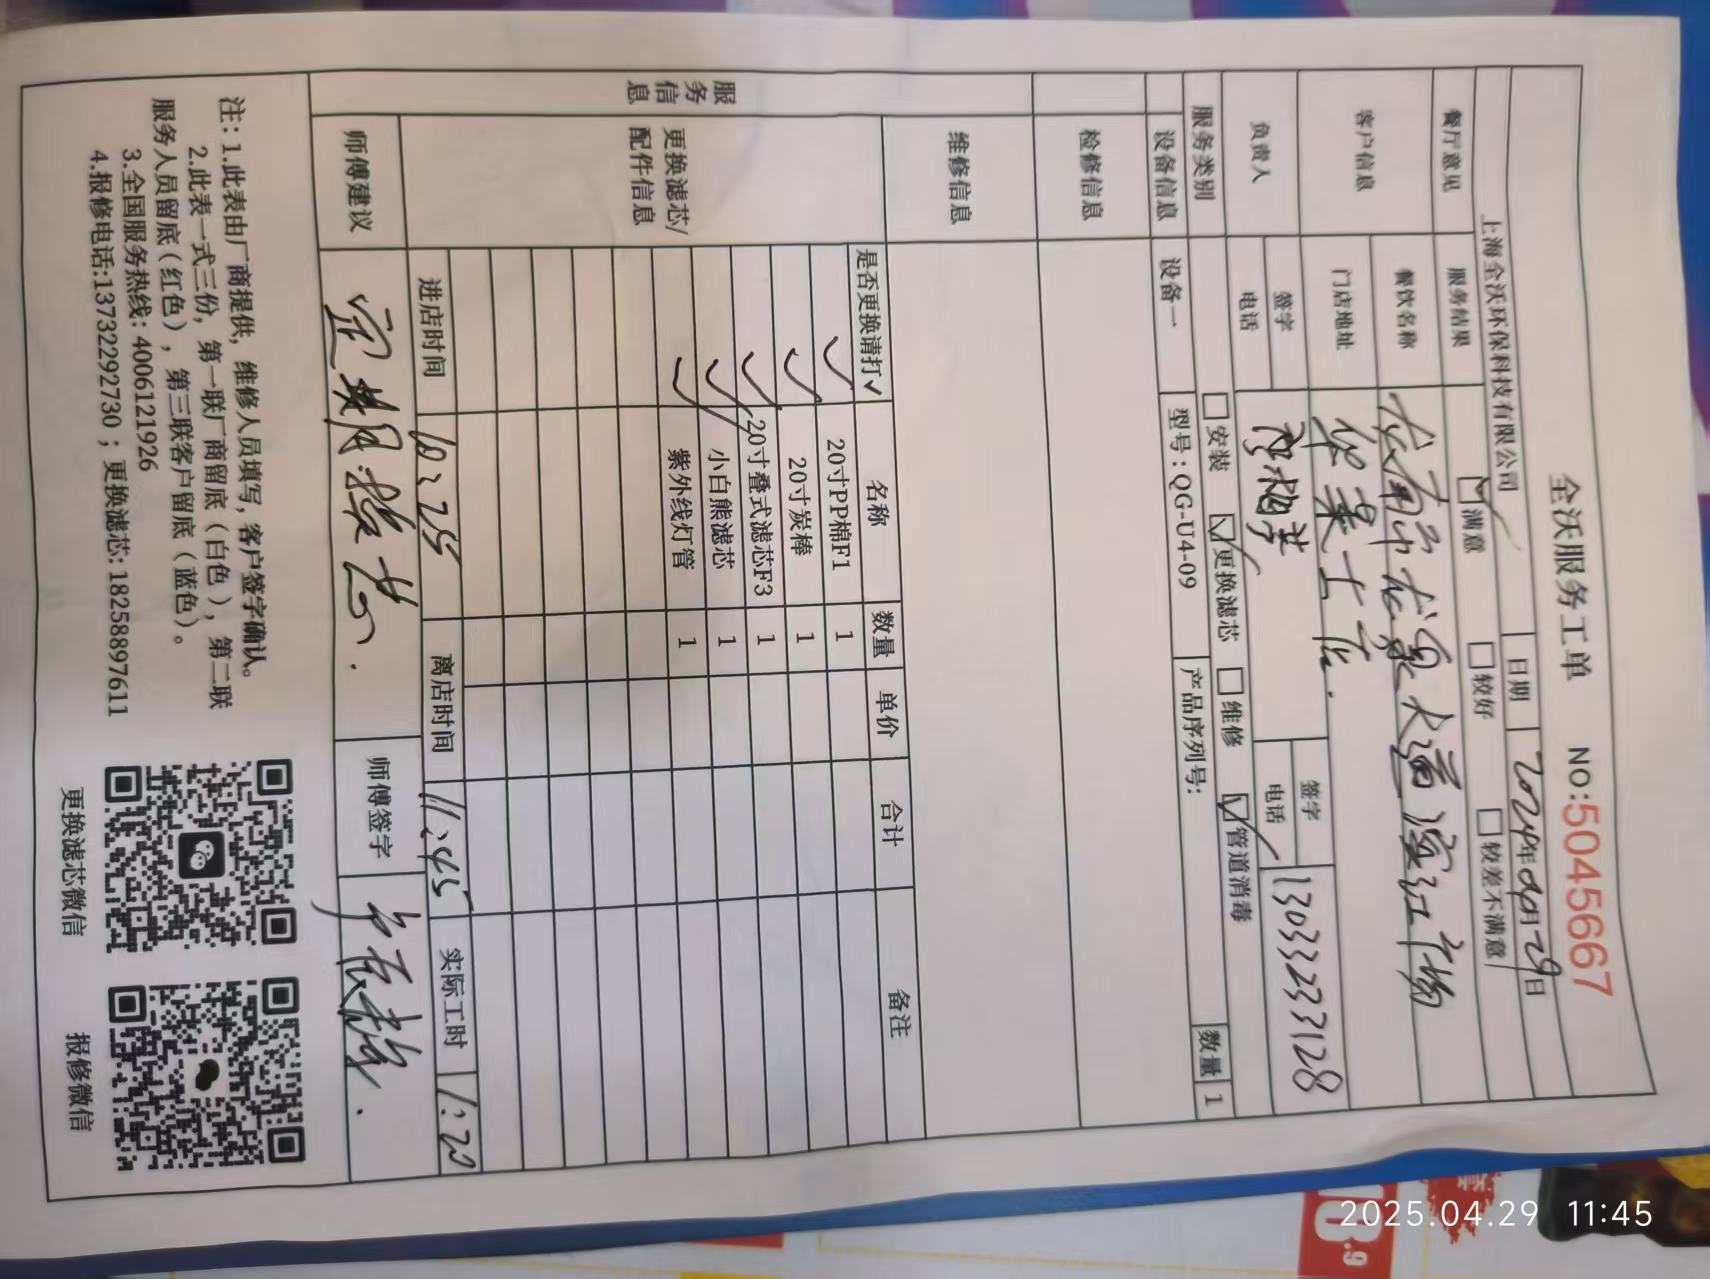 全沃服务工单 NO:5045667
上海全沃环保科技有限公司 日期 2024年04月29日
餐厅意见 服务结果 ☑满意 □较好 □较差不满意
客户信息 餐饮名称
门店地址
负责人 签字 签字
电话 电话 13033233128
服务类别 □安装 ☑更换滤芯 □维修 ☑管道消毒
设备信息 设备一 型号:QG-U4-09 产品序列号: 数量 1
检修信息
维修信息
服务信息
更换滤芯/配件信息
是否更换请打✓ 名称 数量 单价 合计 备注
✓ 20寸PP棉F1 1
✓ 20寸炭棒 1
✓ 20寸叠式滤芯F3 1
✓ 小白熊滤芯 1
✓ 紫外线灯管 1
进店时间 10:25 离店时间 11:45 实际工时 1:20
师傅建议 定期换芯. 师傅签字
注: 1.此表由厂商提供, 维修人员填写, 客户签字确认。
2.此表一式三份, 第一联厂商留底(白色), 第二联
服务人员留底(红色), 第三联客户留底(蓝色)。
3.全国服务热线: 4006121926
4.报修电话:13732292730; 更换滤芯: 18258897611
更换滤芯微信 报修微信
2025.04.29 11:45